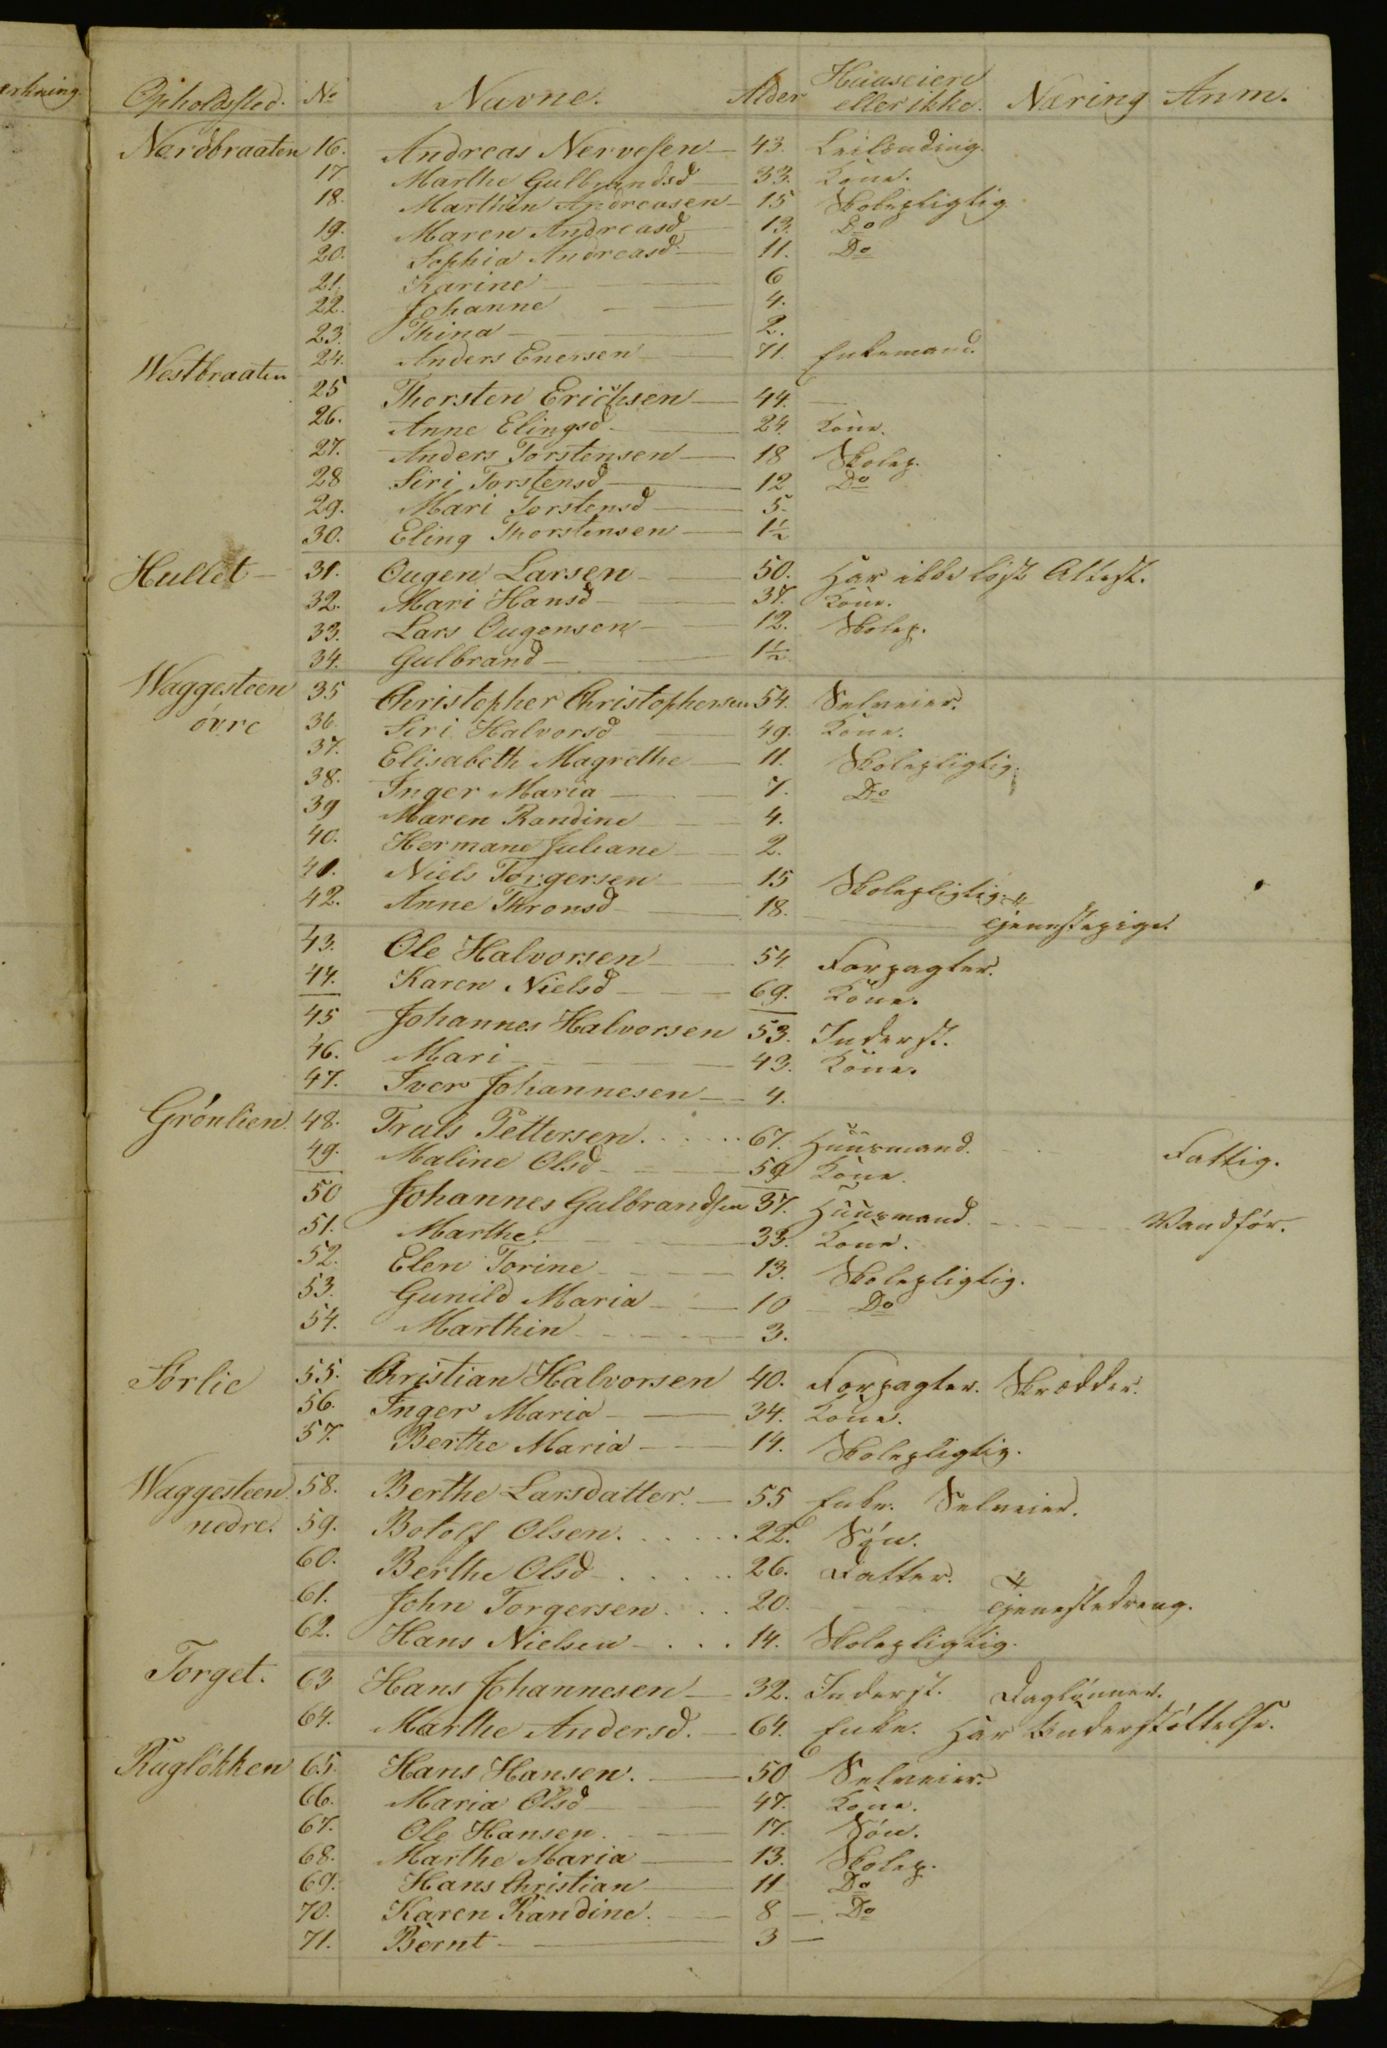 erkning.
Opholdssted. No Navne. Alder Huuseiere eller ikke. Næring Anm.
Nordbraaten 16. Andreas Nervesen 43. Leilending.
17. Marthe Gulbrandsd 33. Kone.
18. Marthin Andreasen 15 Skolepligtig
19. Maren Andreasd 13. Do
20. Sophia Andreasd 11. Do
21. Karine 6
22. Johanne 4.
23. Thina 2.
24. Anders Enersen 71. Enkemand.
Westbraaten
25 Thorsten Erichsen 44.
26. Anne Elingsd 24 Kone.
27. Anders Torstensen 18 Skolep.
28 Siri Torstensd 12 Do
29. Mari Torstensd 5.
30. Eling Thorstensen 1½
Hullet 31. Ougen Larsen 50. Har ikke løst Attest.
32. Mari Hansd 37. Kone.
33. Lars Ougensen 12. Skolep.
34. Gulbrand 1½
Waggesteen øvre 35 Christopher Christophersen 54. Selveier.
36. Siri Halvorsd 49. Kone.
37. Elisabeth Magrethe 11. Skolepligtig.
38. Inger Maria 7. Do
39 Maren Randine 4.
40. Hermane Juliane 2.
41. Niels Torgersen 15 Skolepligtig.
42. Anne Thronsd 18. Tjenestepige.
43. Ole Halvorsen 54 Forpagter.
44. Karen Nielsd 69. Kone.
45 Johannes Halvorsen 53. Inderst.
46. Mari 43. Kone.
47. Iver Johannesen 4.
Grønlien. 48. Truls Pettersen 67. Huusmand. Fattig.
49. Maline Olsd 59 Kone.
50 Johannes Gulbrandsen 37. Huusmand. Vandfør.
51. Marthe 33. Kone.
52. Elen Torine 13. Skolepligtig.
53. Gunild Maria 10 Do
54. Marthin 3.
Sørlie 55. Christian Halvorsen 40. Forpagter. Skrædder.
56. Inger Maria 34. Kone.
57. Berthe Maria 14. Skolepligtig.
Waggesteen nedre. 58. Berthe Larsdatter. 55 Enke. Selveier.
59. Botolf Olsen. 22. Søn.
60. Berthe Olsd 26. Datter.
61. John Torgersen 20. Tjenestedreng.
62. Hans Nielsen 14. Skolepligtig.
Torget. 63 Hans Johannesen 32. Inderst. Daglønner.
64. Marthe Andersd. 64. Enke. Har Understøttelse.
Rugløkken 65. Hans Hansen. 50 Selveier.
66. Maria Olsd 47. Kone.
67. Ole Hansen. 17. Søn.
68. Marthe Maria 13. Skolep.
69. Hans Christian 11 Do
70. Karen Randine. 8 Do
71. Bernt 3